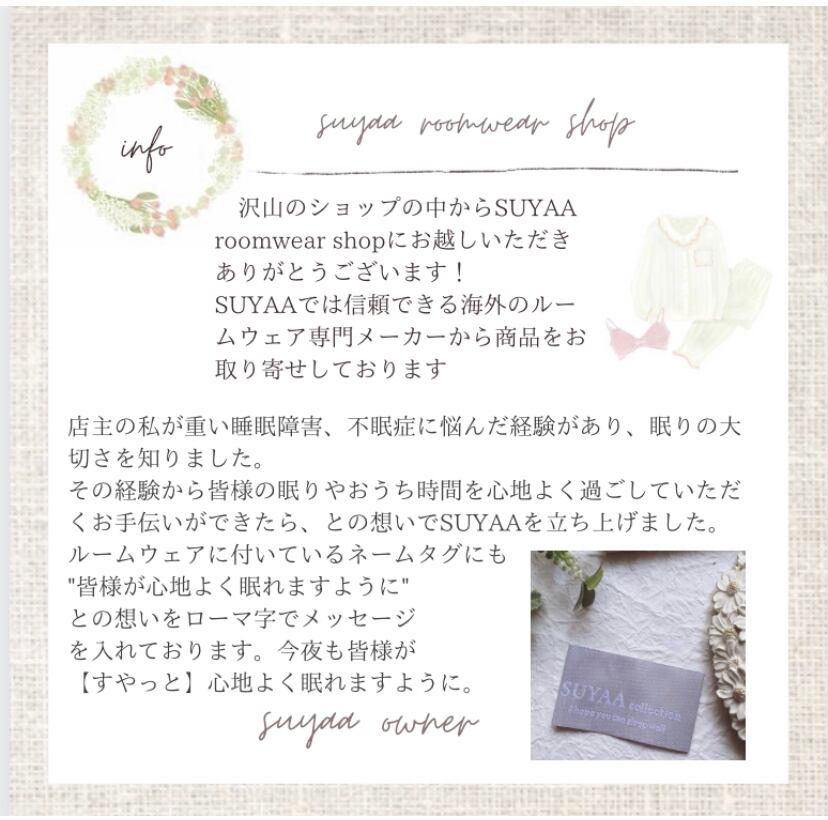 info
suyaa roomwear shop
沢山のショップの中からSUYAA
roomwear shopにお越しいただき
ありがとうございます！
SUYAAでは信頼できる海外のルー
ムウェア専門メーカーから商品をお
取り寄せしております
店主の私が重い睡眠障害、不眠症に悩んだ経験があり、眠りの大
切さを知りました。
その経験から皆様の眠りやおうち時間を心地よく過ごしていただ
くお手伝いができたら、との想いでSUYAAを立ち上げました。
ルームウェアに付いているネームタグにも
"皆様が心地よく眠れますように"
との想いをローマ字でメッセージ
を入れております。今夜も皆様が
【すやっと】心地よく眠れますように。
suyaa owner
SUYAA collection
I hope you can sleep well